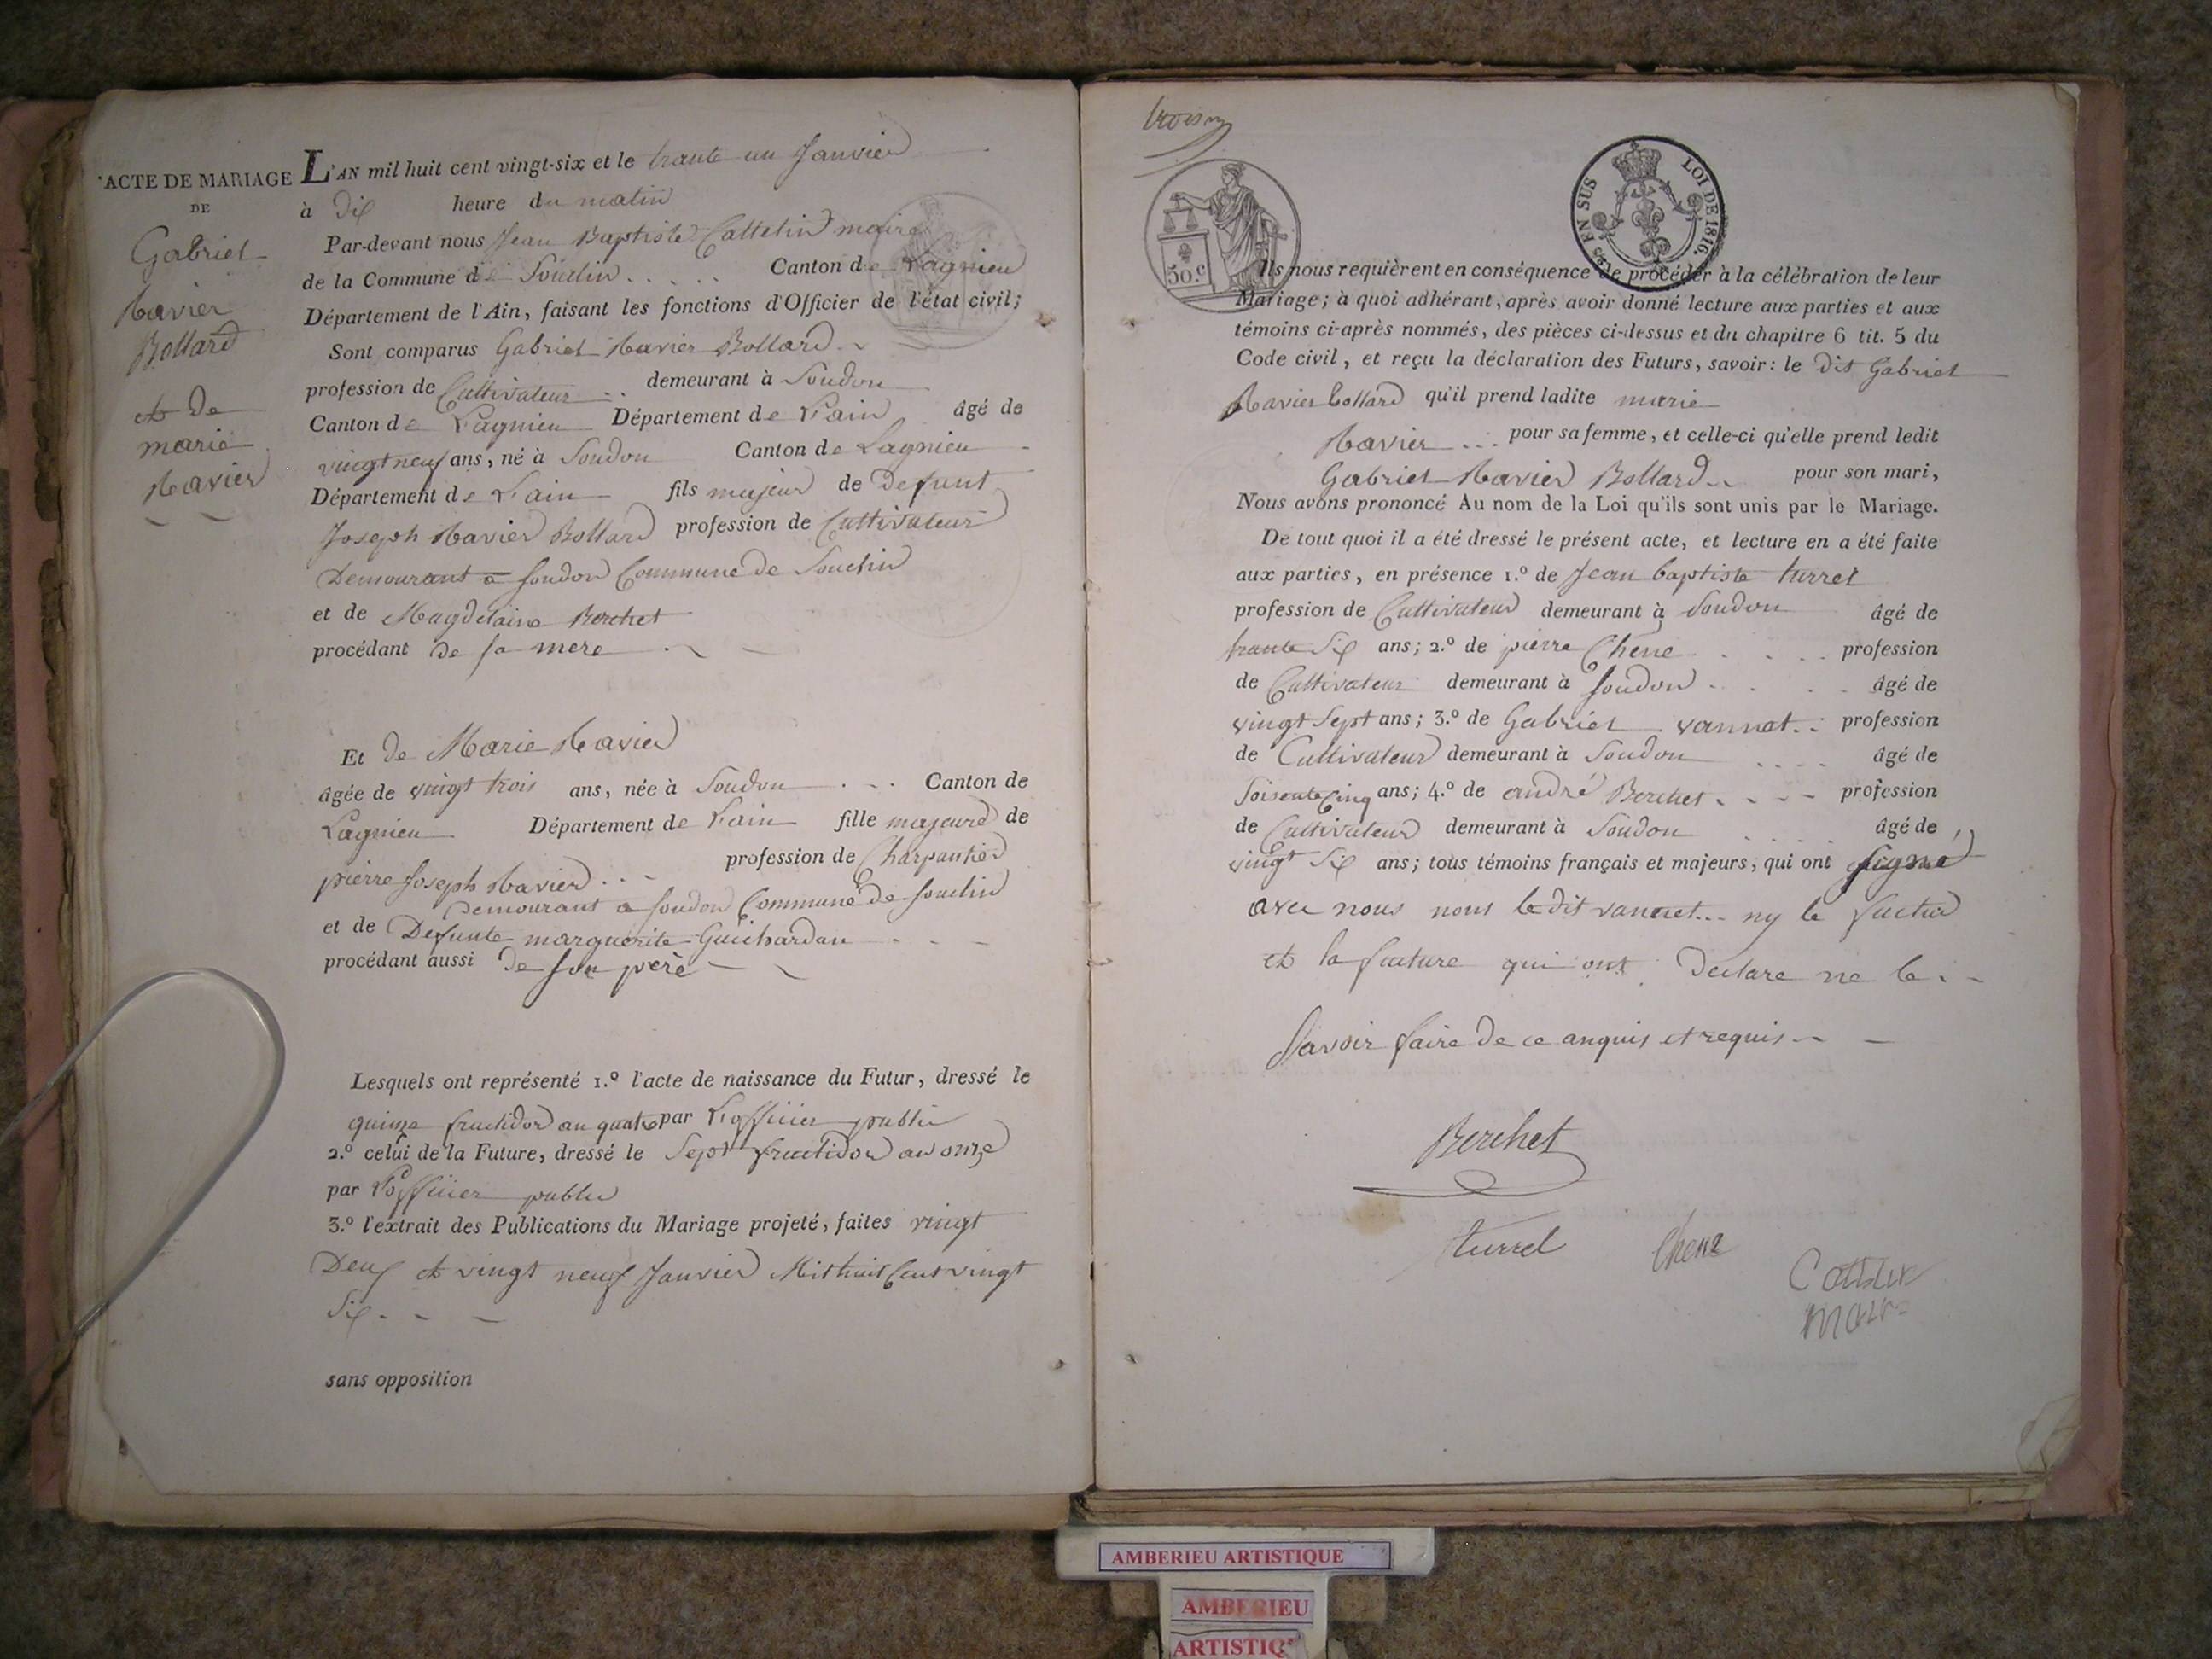 ACTE DE MARIAGE
DE
Gabriel
Ravier
Bollard
et de
marie
Ravier
L'AN mil huit cent vingt-six et le trante un Janvier
à dix heure du matin
Par-devant nous Jean Baptiste Cattelin maire
de la Commune de Souclin Canton de Lagnieu
Département de l'Ain, faisant les fonctions d'Officier de l'état civil;
Sont comparus Gabriel Ravier Bollard
profession de Cultivateur demeurant à Soudon
Canton de Lagnieu Département de L'ain âgé de
vingt neuf ans, né à Soudon Canton de Lagnieu
Département de L'ain fils majeur de Defunt
Joseph Ravier Bollard profession de Cultivateur
Demourant a Soudon Commune de Souclin
et de Magdelaine Berchet
procédant de sa mere
Et de Marie Ravier
âgée de vingt trois ans, née à Soudon Canton de
Lagnieu Département de L'ain fille majeure de
pierre Joseph Ravier profession de Charpantier
Demourant a Soudon Commune de Souclin
et de Defunte marguerite Guichardan
procédant aussi de son père
Lesquels ont représenté 1.º l'acte de naissance du Futur, dressé le
quinze fructidor an quatre par L'officier public
2.º celui de la Future, dressé le Sept fructidor an onze
par L'officier public
3.º l'extrait des Publications du Mariage projeté, faites vingt
Deux et vingt neuf Janvier Mil huit Cent vingt
Six
sans opposition
50.c
EN SUS LOI DE 1816.
Ils nous requièrent en conséquence de procéder à la célébration de leur
Mariage; à quoi adhérant, après avoir donné lecture aux parties et aux
témoins ci-après nommés, des pièces ci-dessus et du chapitre 6 tit. 5 du
Code civil, et reçu la déclaration des Futurs, savoir: le dit Gabriel
Ravier bollard qu'il prend ladite marie
Ravier pour sa femme, et celle-ci qu'elle prend ledit
Gabriel Ravier Bollard pour son mari,
Nous avons prononcé Au nom de la Loi qu'ils sont unis par le Mariage.
De tout quoi il a été dressé le présent acte, et lecture en a été faite
aux parties, en présence 1.º de Jean baptiste turrel
profession de Cultivateur demeurant à Soudon âgé de
trante Six ans; 2.º de pierre Chene profession
de Cultivateur demeurant à Soudon âgé de
vingt Sept ans; 3.º de Gabriel vannet profession
de Cultivateur demeurant à Soudon âgé de
Soisente Cinq ans; 4.º de andré Berchet profession
de Cultivateur demeurant à Soudon âgé de
vingt Six ans; tous témoins français et majeurs, qui ont signé
avec nous nont le dit vannet ny le futur
et la future qui ont Declare ne le
Savoir faire de ce anquis et requis
Berchet
turrel Chene
maire
AMBERIEU ARTISTIQUE
AMBERIEU